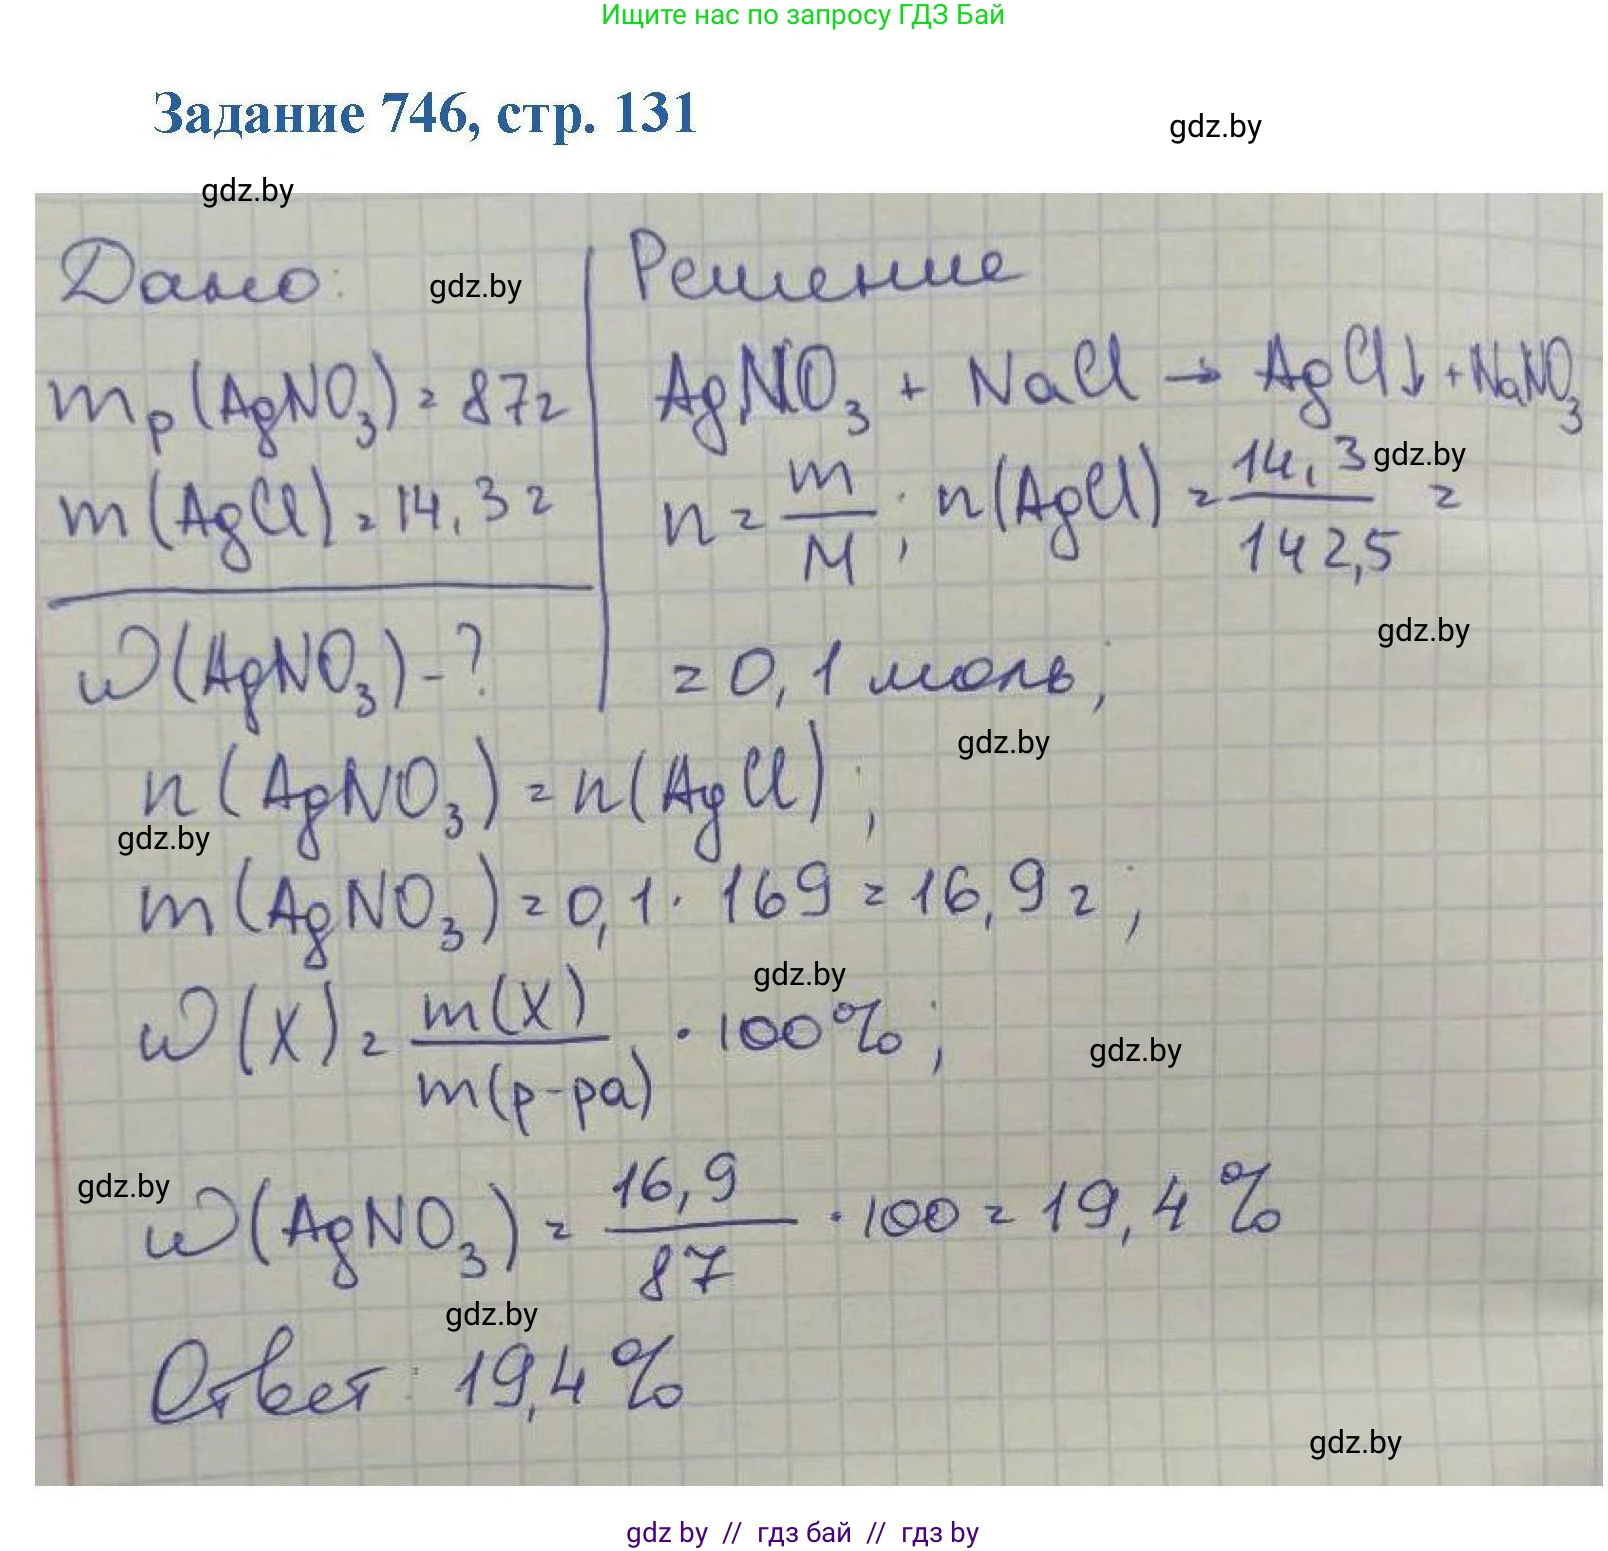 Ищите нас по запросу ГДЗ Бай
Задание 746, стр. 131
gdz.by
gdz.by
Дано:
gdz.by
mр(AgNO₃) = 87г
m(AgCl) = 14,3г
ω(AgNO₃) - ?
Решение
AgNO₃ + NaCl → AgCl↓ + NaNO₃
gdz.by
n = m/M; n(AgCl) = 14,3/142,5 =
gdz.by
= 0,1 моль;
gdz.by
n(AgNO₃) = n(AgCl);
gdz.by
m(AgNO₃) = 0,1 · 169 = 16,9г;
gdz.by
ω(X) = m(X)/m(р-ра) · 100%;
gdz.by
gdz.by
ω(AgNO₃) = 16,9/87 · 100 = 19,4%
gdz.by
Ответ: 19,4%
gdz.by
gdz by // гдз бай // гдз by